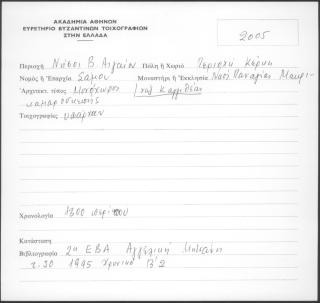 ΑΚΑΔΗΜΙΑ ΑΘΗΝΩΝ
ΕΥΡΕΤΗΡΙΟ ΒΥΖΑΝΤΙΝΩΝ ΤΟΙΧΟΓΡΑΦΙΩΝ
ΣΤΗΝ ΕΛΛΑΔΑ
2005
Περιοχή Νήσοι Β. Αιγαίου Πόλη ή Χωριό Περιοχή
Νομός ή Ἐπαρχία Σάμου Μοναστήρι ἤ Ἐκκλησία Ναός Παναγίας Μακρι-
Ἀρχιτεκτ. τύπος Μονόχωρος
καμαροσκεπής
Τοιχογραφίες υπάρχουν
Χρονολογία 1300 περίπου
Κατάσταση
Βιβλιογραφία 2η ΕΒΑ Αγγελική
1995 Χρονικό Β'2